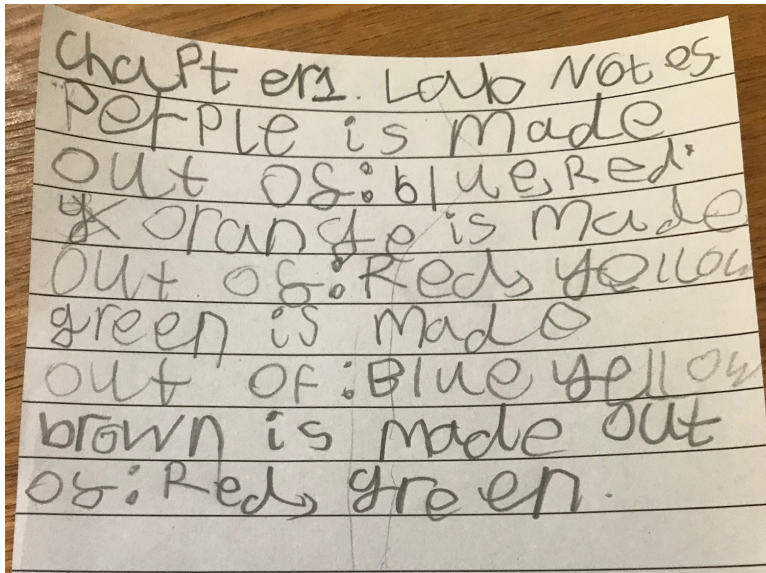 Chapter1. Lab Notes
Perple is made
out of: blue, Red.
orange is made
out of: Red, yellow
green is made
out of: Blue yellow
brown is made out
of: Red, green.